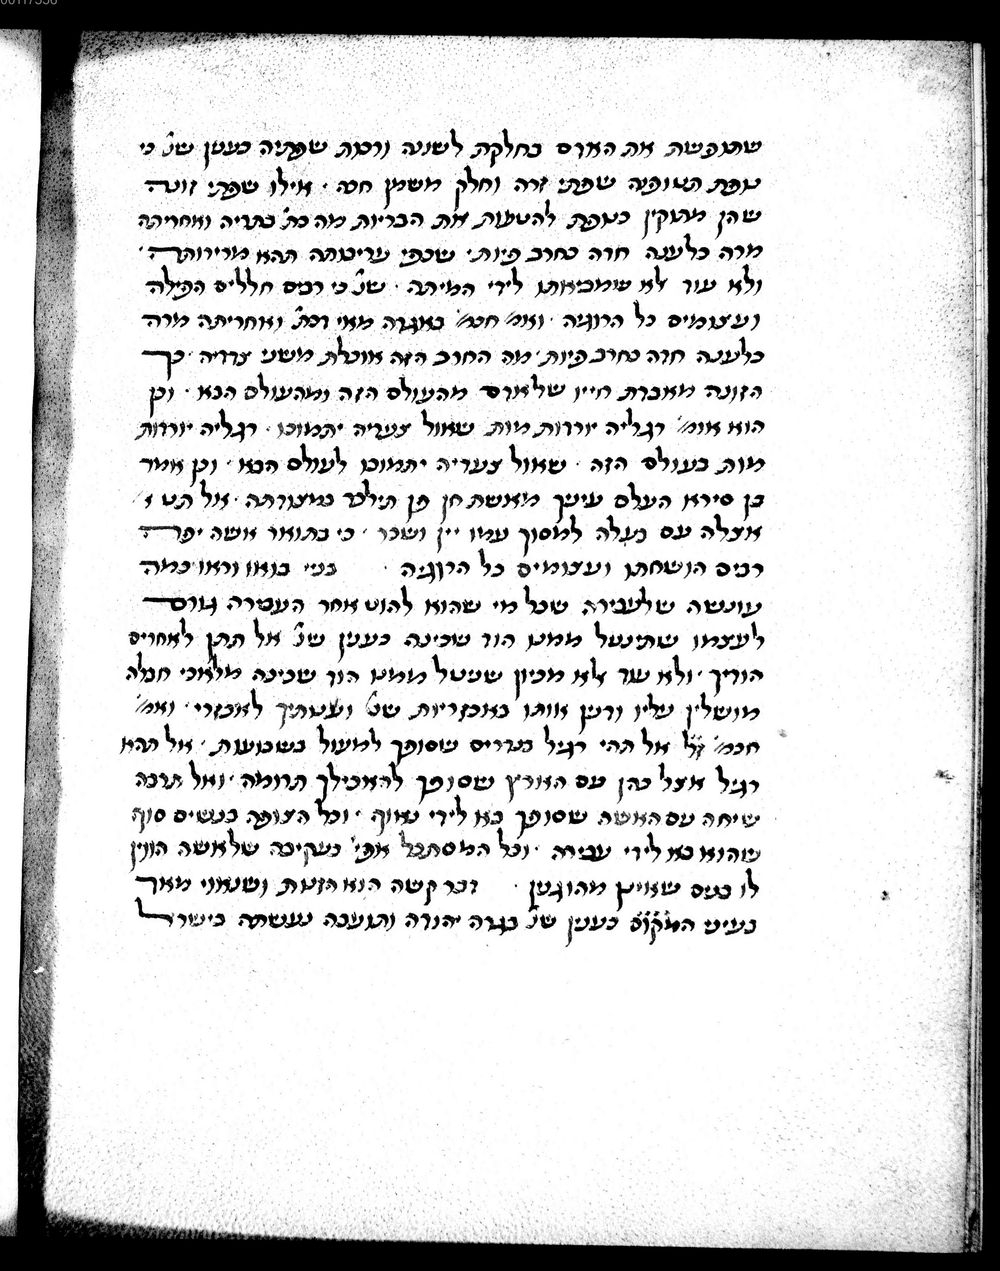 שתופשת את האדם בחלקת לשונה ורכות שפתיה כענין שנ' כי
נופת תטופנה שפתי זרה וחלק משמן חכה · אילו שפתי זונה
שהן מתוקין כנופת להטעות את הבריות מה כת' בתריה ואחריתה
מרה כלענה חדה כחרב פיות · שכפי עריבותה תהא מרירותה ·
ולא עוד אלא שמביאתו לידי המיתה · שנ' כי רבים חללים הפילה
ועצומים כל הרוגיה · ואמ' חכמ' באגדה מאי דכת' ואחריתה מרה
כלענה חדה כחרב פיות · מה החרב הזה אוכלת משני צדדיה · כך
הזונה מאבדת חייו שלאדם מהעולם הזה ומהעולם הבא · וכן
הוא אומ' רגליה יורדות מות שאול צעדיה יתמוכו · רגליה יורדות
מות בעולם הזה · שאול צעדיה יתמוכו לעולם הבא · וכן אמר
בן סירא העלם עיניך מאשת חן פן תילכד במצודתה · אל תט א'
אצלה עם בעלה למסוך עמו יין ושכר · כי בתואר אשה יפה
רבים הושחתו ועצומים כל הרוגיה · בני בואו וראו כמה
עונשה שלעבירה שכל מי שהוא להוט אחר העבירה גורם
לעצמו שתינטל ממנו הוד שכינה כענין שנ' אל תתן לאחרים
הודיך · ולא עוד אלא מכיון שניטל ממנו הוד שכינה מלאכי חבלה
מושלין עליו ודנין אותו באכזריות שנ' ושנתיך לאכזרי · ואמ'
חכמ' ז'ל אל תהי רגיל בנדרים שסופך למעול בשבועות · אל תהא
רגיל אצל כהן עם הארץ שסופך להאכילך תרומה · ואל תרבה
שיחה עם האשה שסופך בא לידי נאוף · וכל הצופה בנשים סוף
שהוא בא לידי עבירה · וכל המסתכל אפי' בעקיבה שלאשה הויין
לו בנים שאינן מהוגנין · דבר קשה הוא הזנות ושנאוי מאד
בעיני המקום כענין שנ' בגדה יהודה ותועבה נעשתה בישראל